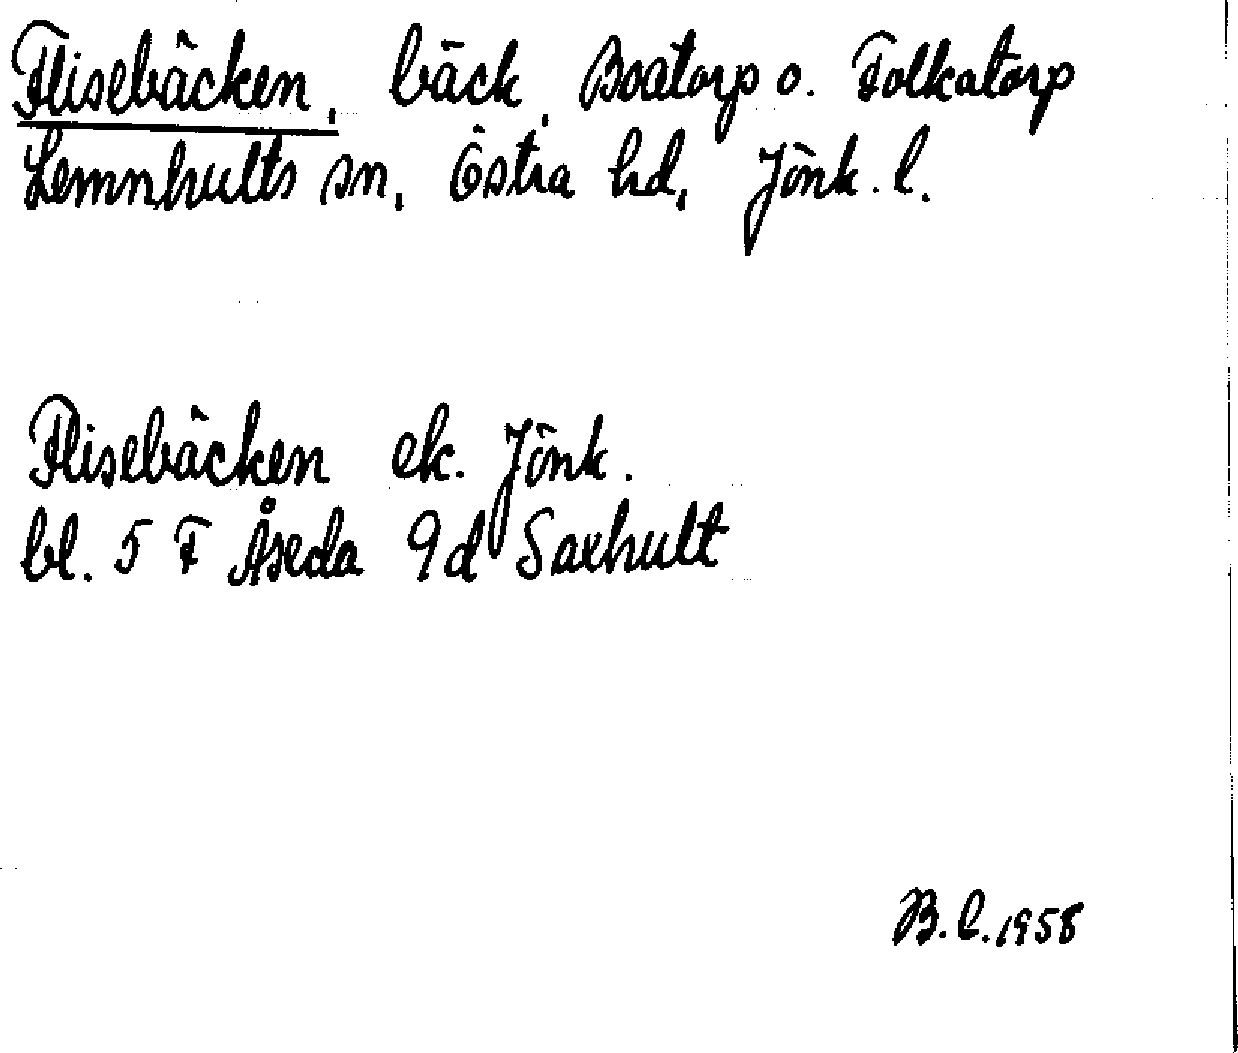 Flisebäcken, bäck, Boatorp o. Folkatorp
Lemnhults sn, Östra hd, Jönk. l.
Flisebäcken ek. Jönk.
bl. 5 F Åseda 9d Saxhult
B.E. 1958